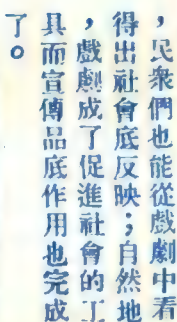 ，民衆們也能從戲劇中看
得出社會底反映；自然地
，戲劇成了促進社會的工
具而宣傳品底作用也完成
了。